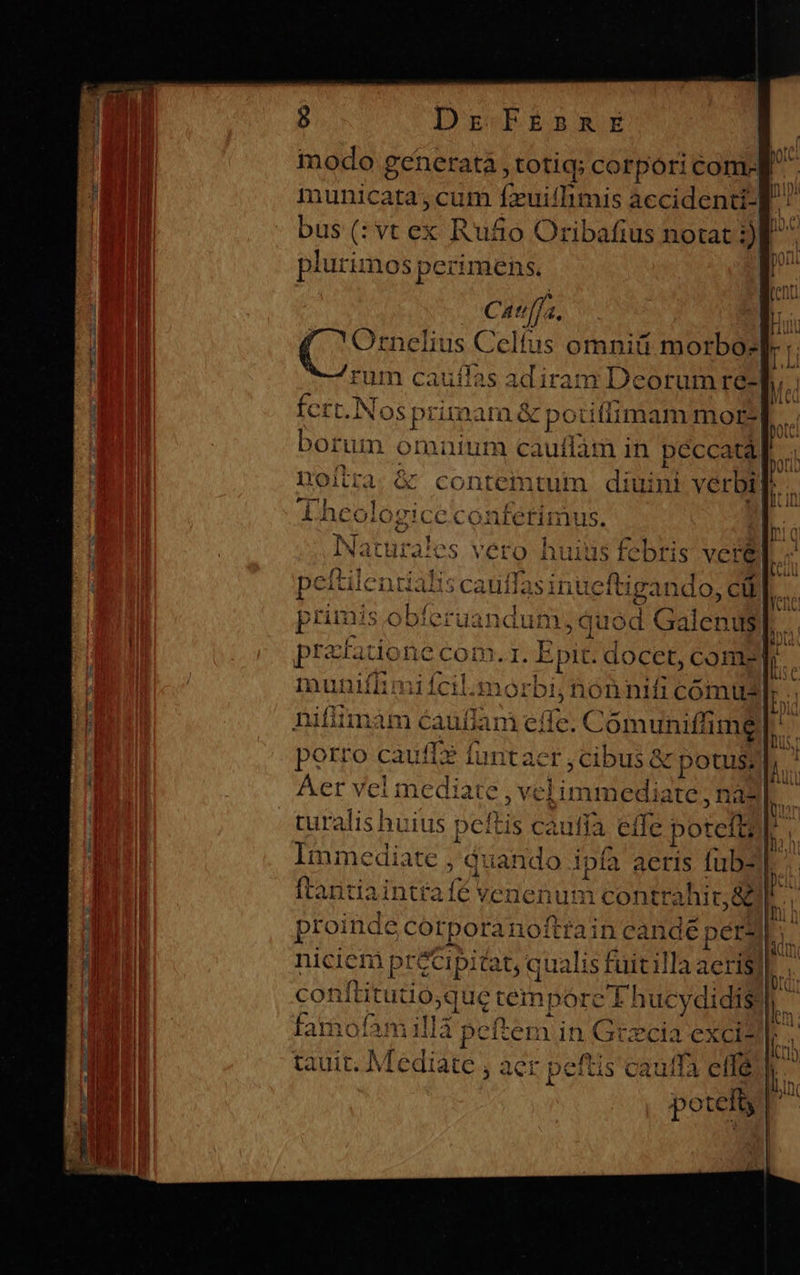 8 DE FEBRE
modo generata, totiq; corpori com-
municata, cum ſæuiſſimis accidenti-
bus (: vt ex Rufio Oribaſius notat :)
plurimos perimens.
Cauſſa.
COrnelius Celſus omniũ morbo-
rum cauſſas ad iram Deorum re-
fert. Nos primam & potiſſimam mor-
borum omnium cauſſam in peccata
noſtra & contemtum diuini verbi
Theologice conferimus.
Naturales vero huius febris veré
peſtilentialis cauſſas inueſtigando, cũ
primis obſeruandum, quod Galenus
præfatione com. 1. Epit. docet, com-
muniſſimi ſcil. morbi, non niſi cõmu-
niſſimam cauſſam eſſe. Cõmuniſſimę
porro cauſſæ ſunt aer, cibus & potus.
Aer vel mediate, vel immediate, na-
turalis huius peſtis cauſſa eſſe poteſt.
Immediate, quando ipſa aeris ſub-
ſtantia intra ſé venenum contrahit, &
proinde corpora noſtra in candé per-
niciem précipitat, qualis fuit illa aeris
conſtitutio, quę tempore Thucydidis
famoſam illã peſtem in Græcia exci-
tauit. Mediate, aer peſtis cauſſa eſſe
poteſt,